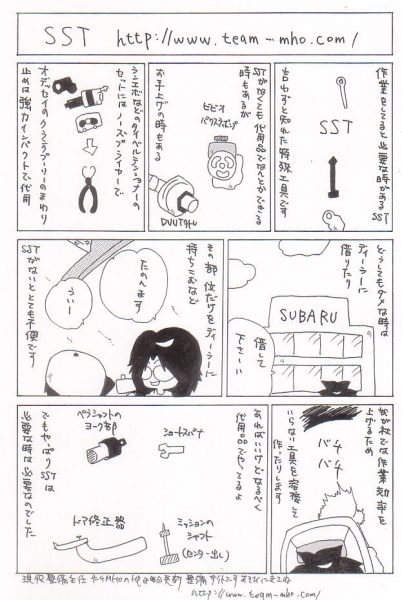 SST http://www.team-mho.com/
作業をしてると必要な時があるSST
SST
言わずと知れた特殊工具です
SSTがなくても代用品でなんとかできる
時もあるが
ビビオ
バックスポンプ
お手上げの時もある
ランエボなどのタイベルテンショナーの
セットにはノーズプライヤーで
オデッセイのクランクプーリーのまわり
止めは強力インパクトで代用
どうしてもダメな時は
ディーラーに
借りたり
SUBARU
借して
下さーい
その部位だけをディーラーに
持ちこむなど
たのんます
うぃー
SSTがないととても不便です
我が社では作業効率を
上げるため
バチ
バチ
いらない工具を溶接して
作ったりします
あればいいけどなるべく
代用品でやってるよ
ショートスパナ
ペラシャフトの
ヨーク部
ミッションの
シャフト
(センター出し)
ドア修正器
でもやっぱりSSTは
必要な時は必要なのでした
http://www.team-mho.com/